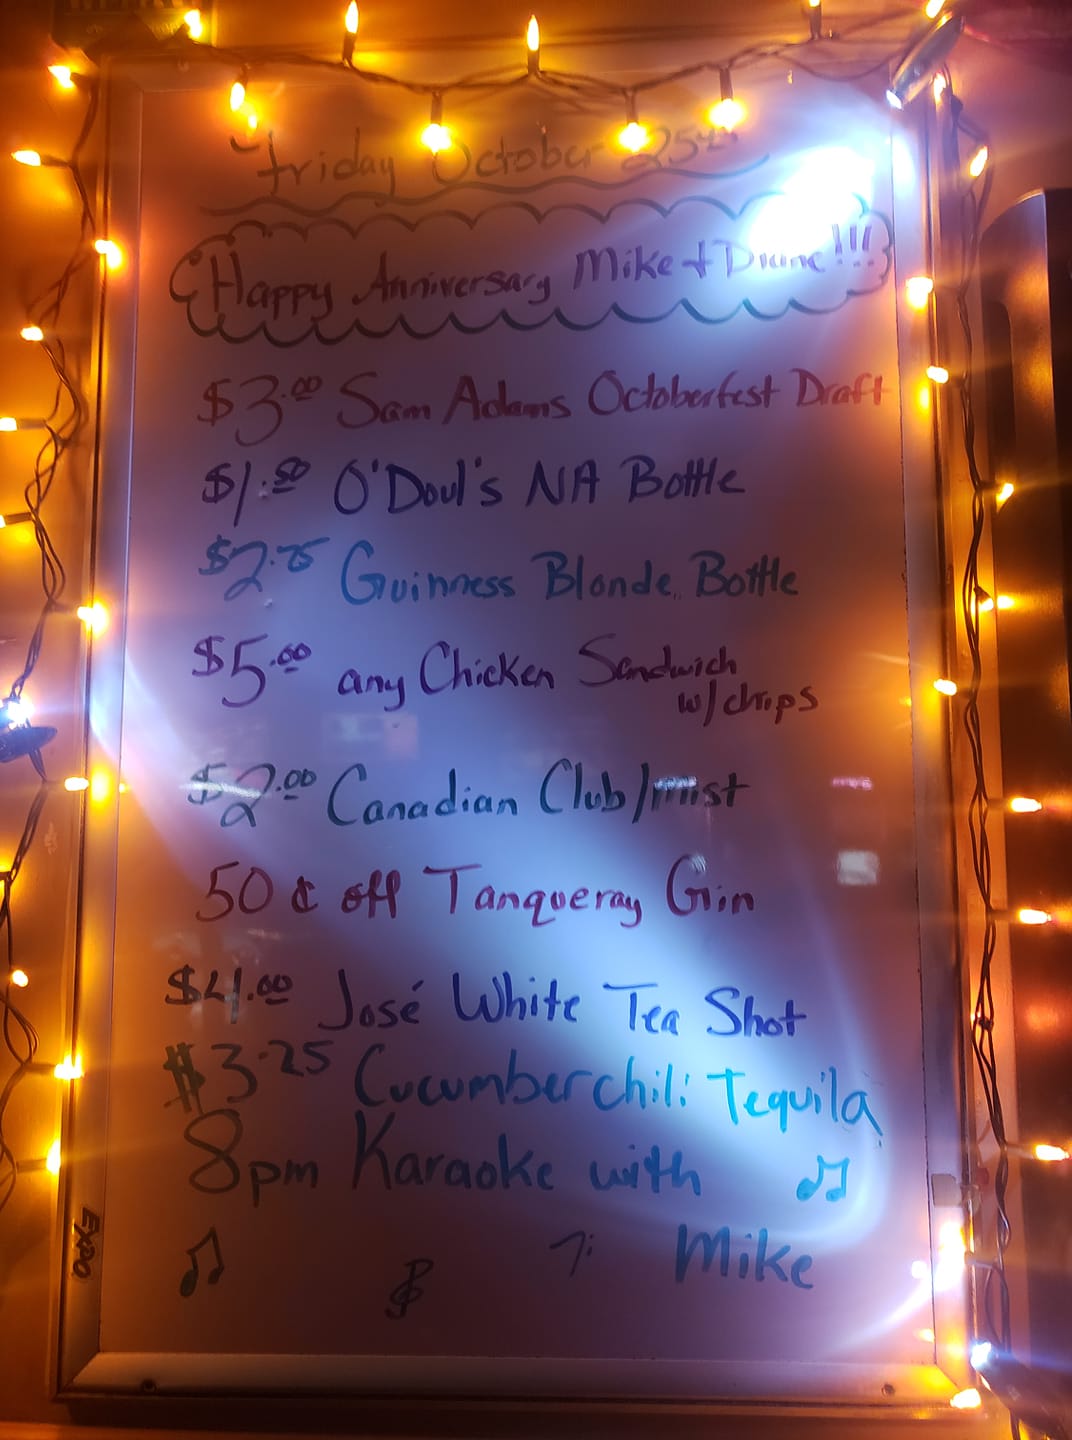 Friday October 25th
Happy Anniversary Mike + Diane!!!
$3.00 Sam Adams Octoberfest Draft
$1.50 O'Doul's NA Bottle
$2.75 Guinness Blonde Bottle
$5.00 any Chicken Sandwich
w/chips
$2.00 Canadian Club/mist
50¢ off Tanqueray Gin
$4.00 José White Tea Shot
$3.25 Cucumber chili Tequila
8pm Karaoke with
Mike
EXPO